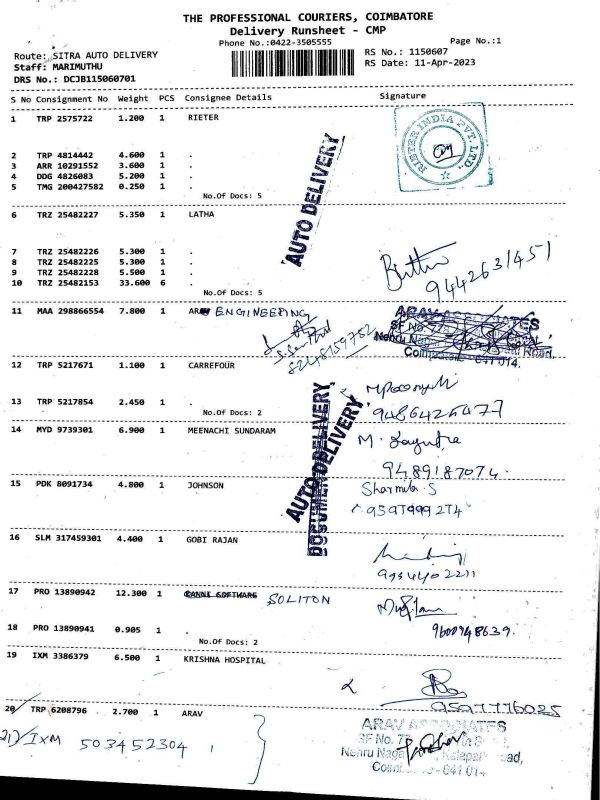 THE PROFESSIONAL COURIERS, COIMBATORE
Delivery Runsheet - CMP
Phone No.:0422-3505555 Page No.:1
Route: SITRA AUTO DELIVERY RS No.: 1150607
Staff: MARIMUTHU RS Date: 11-Apr-2023
DRS No.: DCJB115060701
S No Consignment No Weight PCS Consignee Details Signature
1 TRP 2575722 1.200 1 RIETER
RIETER INDIA PVT. LTD.
2 TRP 4814442 4.600 1 .
3 ARR 10291552 3.600 1 .
4 DDG 4826083 5.200 1 .
5 TMG 200427582 0.250 1 .
No.Of Docs: 5
AUTO DELIVERY
6 TRZ 25482227 5.350 1 LATHA
7 TRZ 25482226 5.300 1 .
8 TRZ 25482225 5.300 1 .
9 TRZ 25482228 5.500 1 .
10 TRZ 25482153 33.600 6 .
No.Of Docs: 5
9442631451
11 MAA 298866554 7.800 1 ENGINEERING
ARAV ASSOCIATES
SF No. 77
Nehru Nagar Road,
641 014.
8248159752
12 TRP 5217671 1.100 1 CARREFOUR
13 TRP 5217854 2.450 1 .
No.Of Docs: 2
AUTO DELIVERY
DOCUMENT DELIVERY
14 MYD 9739301 6.900 1 MEENACHI SUNDARAM
9489187074.
15 PDK 8091734 4.800 1 JOHNSON
Sharmila.S
16 SLM 317459301 4.400 1 GOBI RAJAN
17 PRO 13890942 12.300 1 SOLITON
18 PRO 13890941 0.905 1 .
No.Of Docs: 2
9600948639.
19 IXM 3386379 6.500 1 KRISHNA HOSPITAL
9597776025
20 TRP 6208796 2.700 1 ARAV
21) IXM 503452304 1
ARAV ASSOCIATES
SF No. 77
Nehru Nagar, Kalapatti Road,
641 014